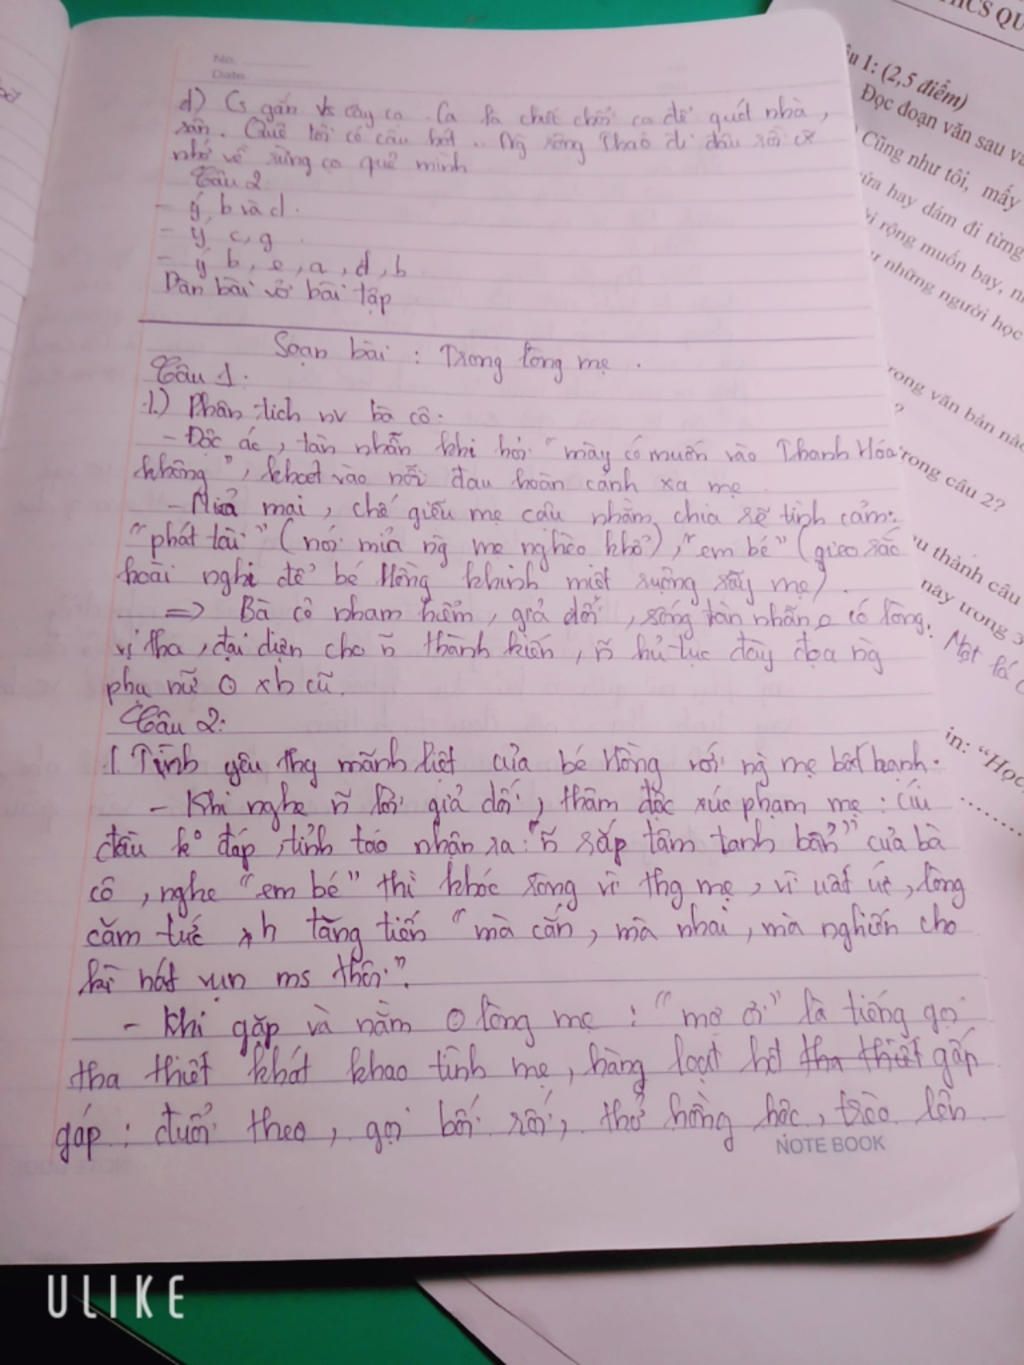 No.
Date
d) Cs gắn vs cây cọ. Cọ là chiếc chổi cọ để quét nhà,
sân. Quê tôi có câu hát .. Ng sông Thao đi đâu rồi cx
nhớ về rừng cọ quê mình
Câu 2
- ý b và d.
- ý c, g
- ý b, e, a, d, b
Dàn bài vở bài tập
Soạn bài : Trong lòng mẹ.
Câu 1.
1.) Phân tích nv bà cô.
- Độc ác, tàn nhẫn khi hỏi "mày có muốn vào Thanh Hóa
không", khoét vào nỗi đau hoàn cảnh xa mẹ
- Mỉa mai, chế giễu mẹ cậu nhằm chia rẽ tình cảm:
"phát tài" (nói mỉa ng mẹ nghèo khổ), "em bé" (gieo rắc
hoài nghi để bé Hồng khinh miệt ruồng rẫy mẹ)
=> Bà cô nham hiểm, giả dối, sống tàn nhẫn o có lòng
vị tha, đại diện cho ñ thành kiến, ñ hủ tục đày đọa ng
phụ nữ O xh cũ.
Câu 2:
1. Tình yêu thg mãnh liệt của bé Hồng với ng mẹ bất hạnh.
- Khi nghe ñ lời giả dối, thâm độc xúc phạm mẹ : cúi
đầu k° đáp, tỉnh táo nhận ra: "ñ rắp tâm tanh bẩn" của bà
cô, nghe "em bé" thì khóc ròng vì thg mẹ, vì uất ức, lòng
căm tức xh tăng tiến "mà cắn, mà nhai, mà nghiến cho
kì nát vụn ms thôi."
- Khi gặp và nằm O lòng mẹ : "mợ ơi" là tiếng gọi
tha thiết khát khao tình mẹ, hàng loạt hđ tha thiết gấp
gáp : đuổi theo, gọi bối rối, thở hồng hộc, trèo lên
NOTE BOOK
THCS QU
Câu 1: (2,5 điểm)
Đọc đoạn văn sau và
Cũng như tôi, mấy
hay dám đi từng
rộng muốn bay,
những người học
trong văn bản nào
?
trong câu 2?
thành câu
này trong 3
in: "Học
ULIKE